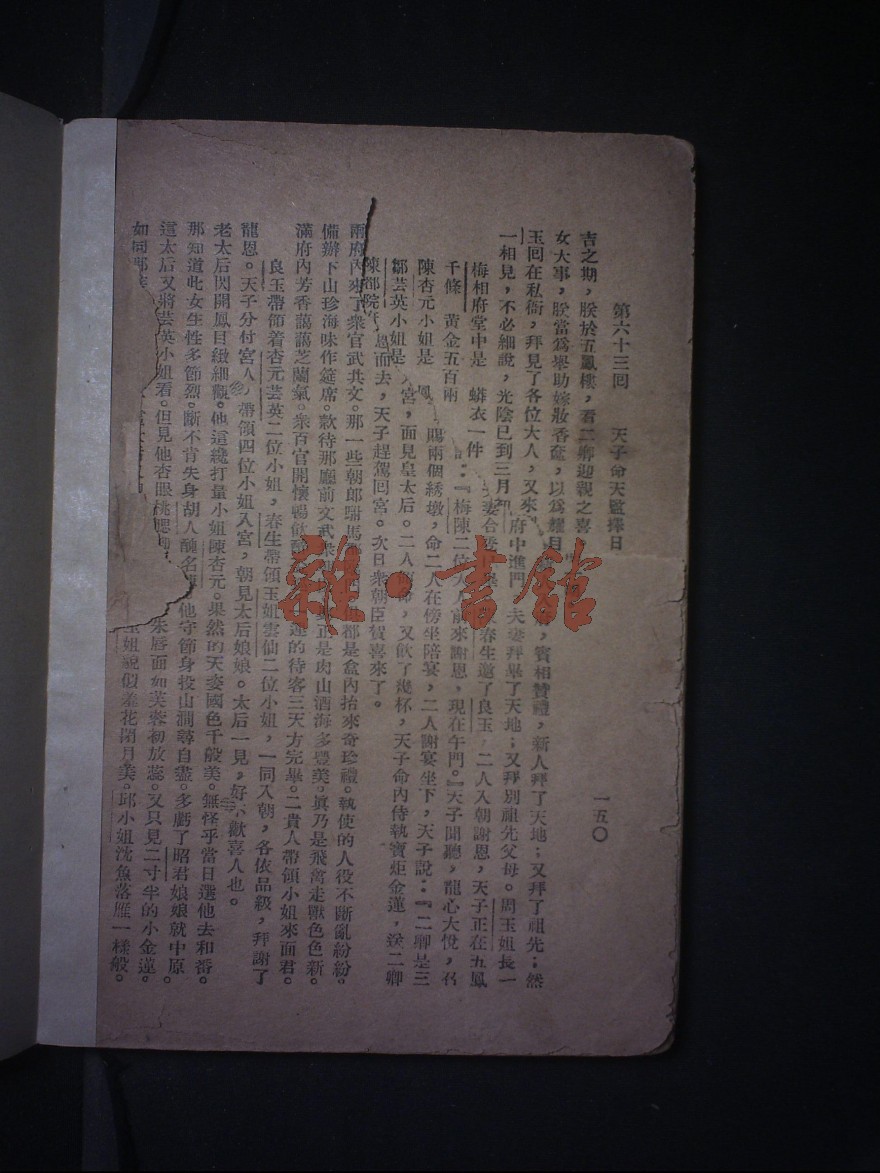 第六十三回 天子命天監擇日 一五〇
吉之期，朕於五鳳樓，看二卿迎親之喜 賓相贊禮，新人拜了天地；又拜了祖先；然
女大事，朕當爲舉助嫁妝香奩，以爲耀目 府中進門，夫妻拜畢了天地；又拜別祖先父母。周玉姐長一
玉回在私衙，拜見了各位大人，又來
一相見，不必細說，光陰已到三月 春生邀了良玉，二人入朝謝恩，天子正在五鳳
梅相府堂中是 蟒衣一件 ：『梅陳二位大人前來謝恩，現在午門。』天子聞聽，龍心大悅，召
千條 黃金五百兩 賜兩個綉墩，命二人在傍坐陪宴，二人謝宴坐下，天子說：『二卿是三
陳杏元小姐是 宮，面見皇太后。二人 又飲了幾杯，天子命內侍執寶炬金蓮，送二卿
鄒芸英小姐是 而去，天子趕駕回宮。次日衆朝臣賀喜來了。
陳都院
兩府內來了衆官武共文。那一些朝郎駙馬 都是盒內抬來奇珍禮。執使的人役不斷亂紛紛。
備辦下山珍海味作筵席。款待那廳前文武衆 正是肉山酒海多豐美。眞乃是飛禽走獸色色新。
滿府內芳香藹藹芝蘭氣。衆百官開懷暢飲 連的待客三天方完畢。二貴人帶領小姐來面君。
良玉帶節着杏元芸英二位小姐，春生帶領玉姐雲仙二位小姐，一同入朝，各依品級，拜謝了
龍恩。天子分付宮人，帶領四位小姐入宮，朝見太后娘娘。太后一見，好不歡喜人也。
老太后閃開鳳目緻細觀。他這纔打量小姐陳杏元。果然的天姿國色千般美。無怪乎當日選他去和番。
那知道此女生性多節烈。斷不肯失身胡人醜名 他守節身投山澗尋自盡。多虧了昭君娘娘就中原。
這太后又將芸英小姐看。但見他杏眼桃腮 朱唇面如芙蓉初放蕊。又只見二寸半的小金蓮。
如同那 玉姐貌似羞花閉月美。邱小姐沈魚落雁一樣般。
雜·書館